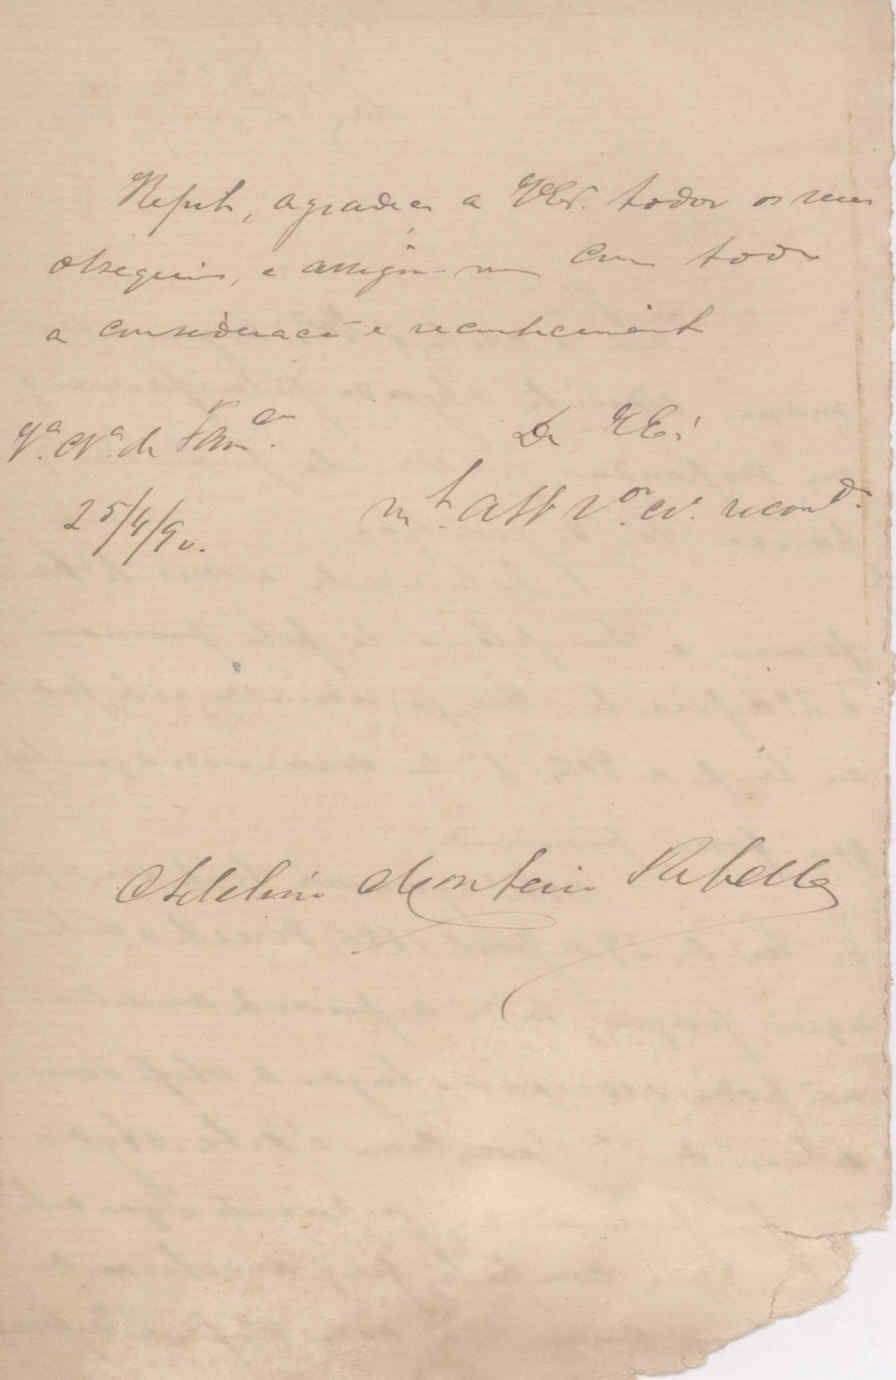 Repito, agradeço a V.Ex. todos os seus
obsequios, e assigno-me com toda
a consideração e reconhecimento
Va. Na. de Fam.co.
De V.Ex.
25/4/90.
mto. Attº Vor. Cr. recondo.
Adelino Monteiro Rebello